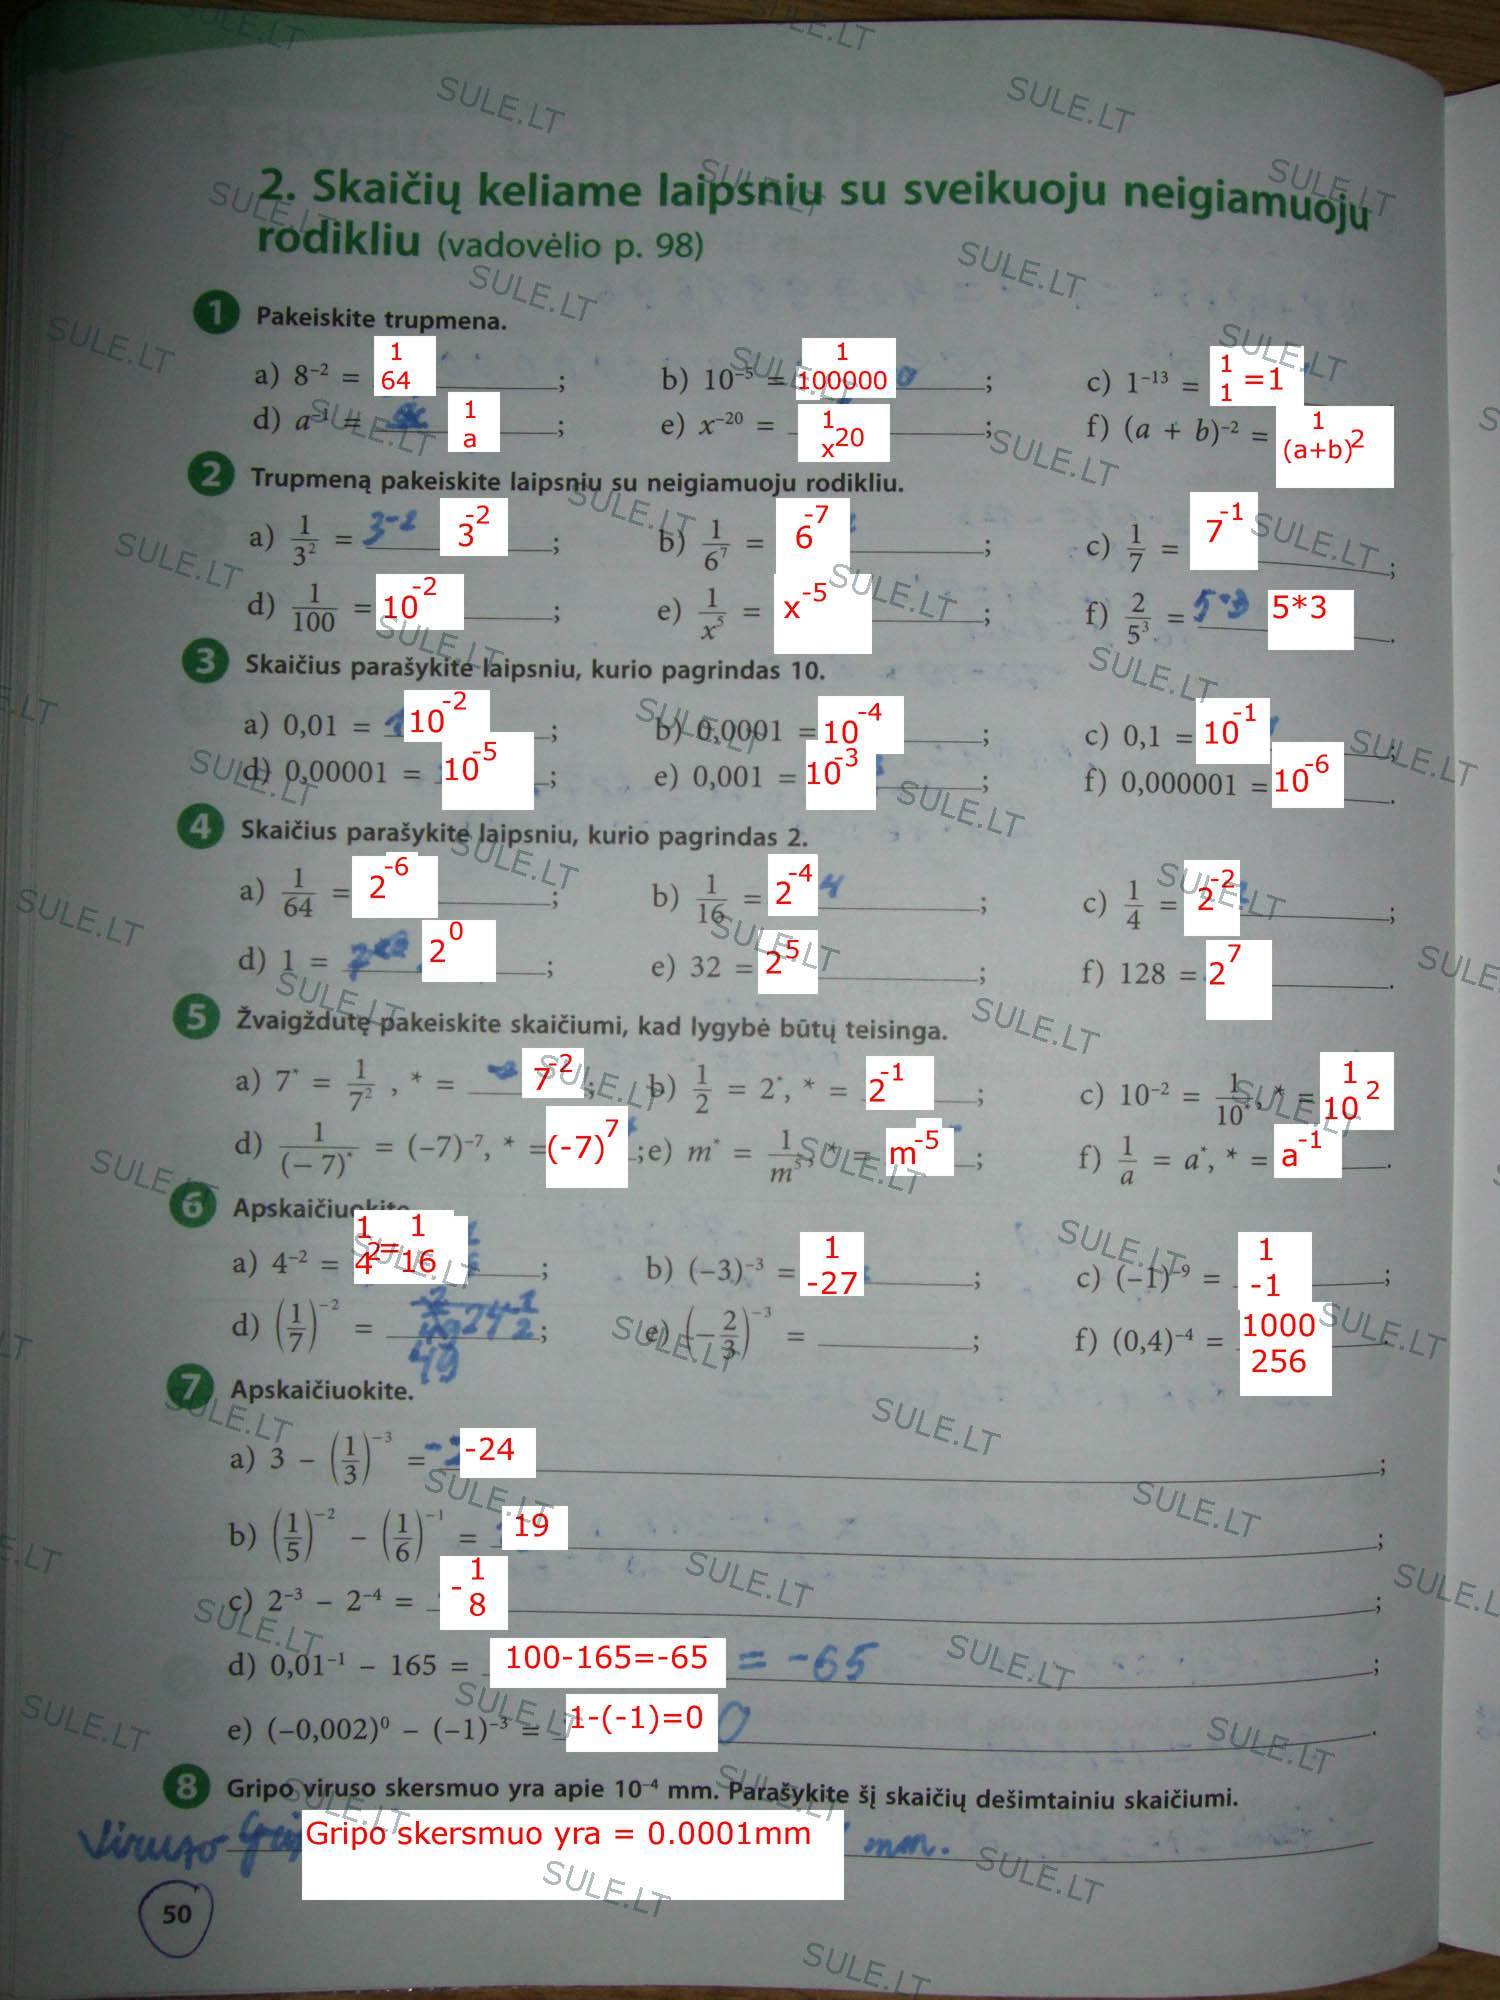 2. Skaičių keliame laipsniu su sveikuoju neigiamuoju
rodikliu (vadovėlio p. 98)
1 Pakeiskite trupmena.
a) 8⁻² = 1/64 ; b) 10⁻⁵ = 1/100000 ; c) 1⁻¹³ = 1/1 =1
d) a⁻¹ = 1/a ; e) x⁻²⁰ = 1/x²⁰ ; f) (a + b)⁻² = 1/(a+b)²
2 Trupmeną pakeiskite laipsniu su neigiamuoju rodikliu.
a) 1/3² = 3⁻² 3⁻² ; b) 1/6⁷ = 6⁻⁷ ; c) 1/7 = 7⁻¹ ;
d) 1/100 = 10⁻² ; e) 1/x⁵ = x⁻⁵ ; f) 2/5³ = 5*3 5*3 .
3 Skaičius parašykite laipsniu, kurio pagrindas 10.
a) 0,01 = 10⁻² ; b) 0,0001 = 10⁻⁴ ; c) 0,1 = 10⁻¹ ;
d) 0,00001 = 10⁻⁵ ; e) 0,001 = 10⁻³ ; f) 0,000001 = 10⁻⁶ .
4 Skaičius parašykite laipsniu, kurio pagrindas 2.
a) 1/64 = 2⁻⁶ ; b) 1/16 = 2⁻⁴ 4 ; c) 1/4 = 2⁻² ;
d) 1 = 2⁰ ; e) 32 = 2⁵ ; f) 128 = 2⁷ .
5 Žvaigždutę pakeiskite skaičiumi, kad lygybė būtų teisinga.
a) 7* = 1/7² , * = 7⁻² ; b) 1/2 = 2*, * = 2⁻¹ ; c) 10⁻² = 1/10*, * = 1/10²
d) 1/(– 7)* = (–7)⁻⁷, * = (-7)⁷ ; e) m* = 1/m⁵, * = m⁻⁵ ; f) 1/a = a*, * = a⁻¹ .
6 Apskaičiuokite
a) 4⁻² = 1/4² = 1/16 ; b) (–3)⁻³ = 1/-27 ; c) (–1)⁻⁹ = 1/-1 ;
d) (1/7)⁻² = 49 ; e) (–2/3)⁻³ = ; f) (0,4)⁻⁴ = 1000/256
7 Apskaičiuokite.
a) 3 – (1/3)⁻³ = -24 ;
b) (1/5)⁻² – (1/6)⁻¹ = 19 ;
c) 2⁻³ – 2⁻⁴ = -1/8 ;
d) 0,01⁻¹ – 165 = 100-165=-65 = -65 ;
e) (–0,002)⁰ – (–1)⁻³ = 1-(-1)=0 0 .
8 Gripo viruso skersmuo yra apie 10⁻⁴ mm. Parašykite šį skaičių dešimtainiu skaičiumi.
Viruso Gripo skersmuo yra = 0.0001mm mm.
50
SULE.LT